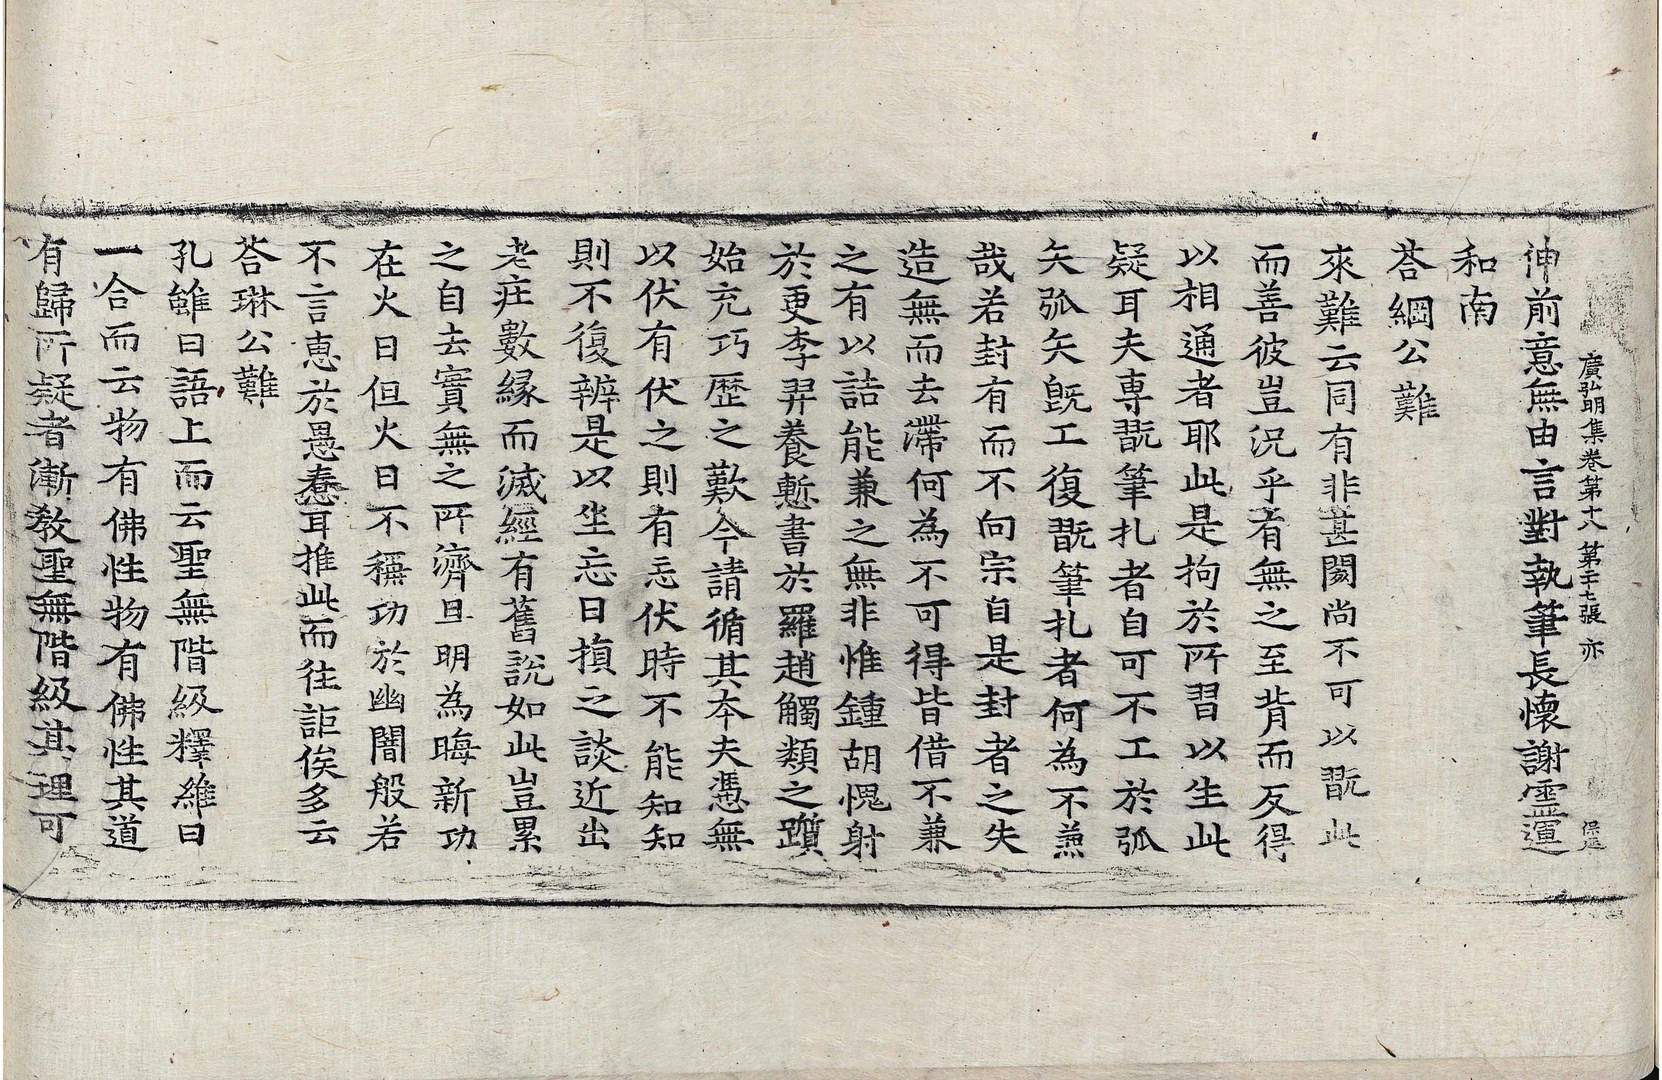 廣弘明集卷第十八 第二十七張 亦
伸前意無由言對執筆長懷謝靈運
和南
荅綱公難
來難云同有非甚閡尚不可以翫此
而善彼豈況乎有無之至背而反得
以相通者耶此是拘於所習以生此
疑耳夫專翫筆扎者自可不工於弧
矢弧矢旣工復翫筆扎者何為不兼
哉若封有而不向宗自是封者之失
造無而去滯何為不可得皆借不兼
之有以詰能兼之無非惟鍾胡愧射
於更李羿養慙書於羅趙觸類之躓
始充巧歷之歎今請循其夲夫憑無
以伏有伏之則有忘伏時不能知知
則不復辨是以坐忘日損之談近出
老庄數緣而滅經有舊說如此豈累
之自去實無之所濟且明為晦新功
在火日但火日不稱功於幽闇般若
不言惠於愚惷耳推此而往詎俟多云
荅琳公難
孔雖曰語上而云聖無階級釋雖曰
一合而云物有佛性物有佛性其道
有歸所疑者漸教聖無階級其理可